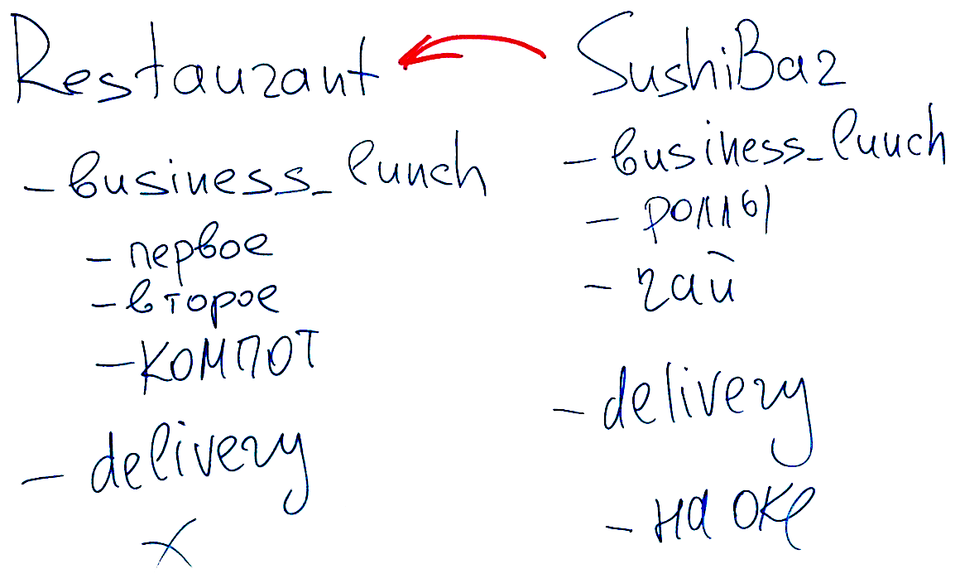 Restaurant
- business_lunch
- первое
- второе
- компот
- delivery
х
SushiBar
- business_lunch
- роллы
- чай
- delivery
- на оке